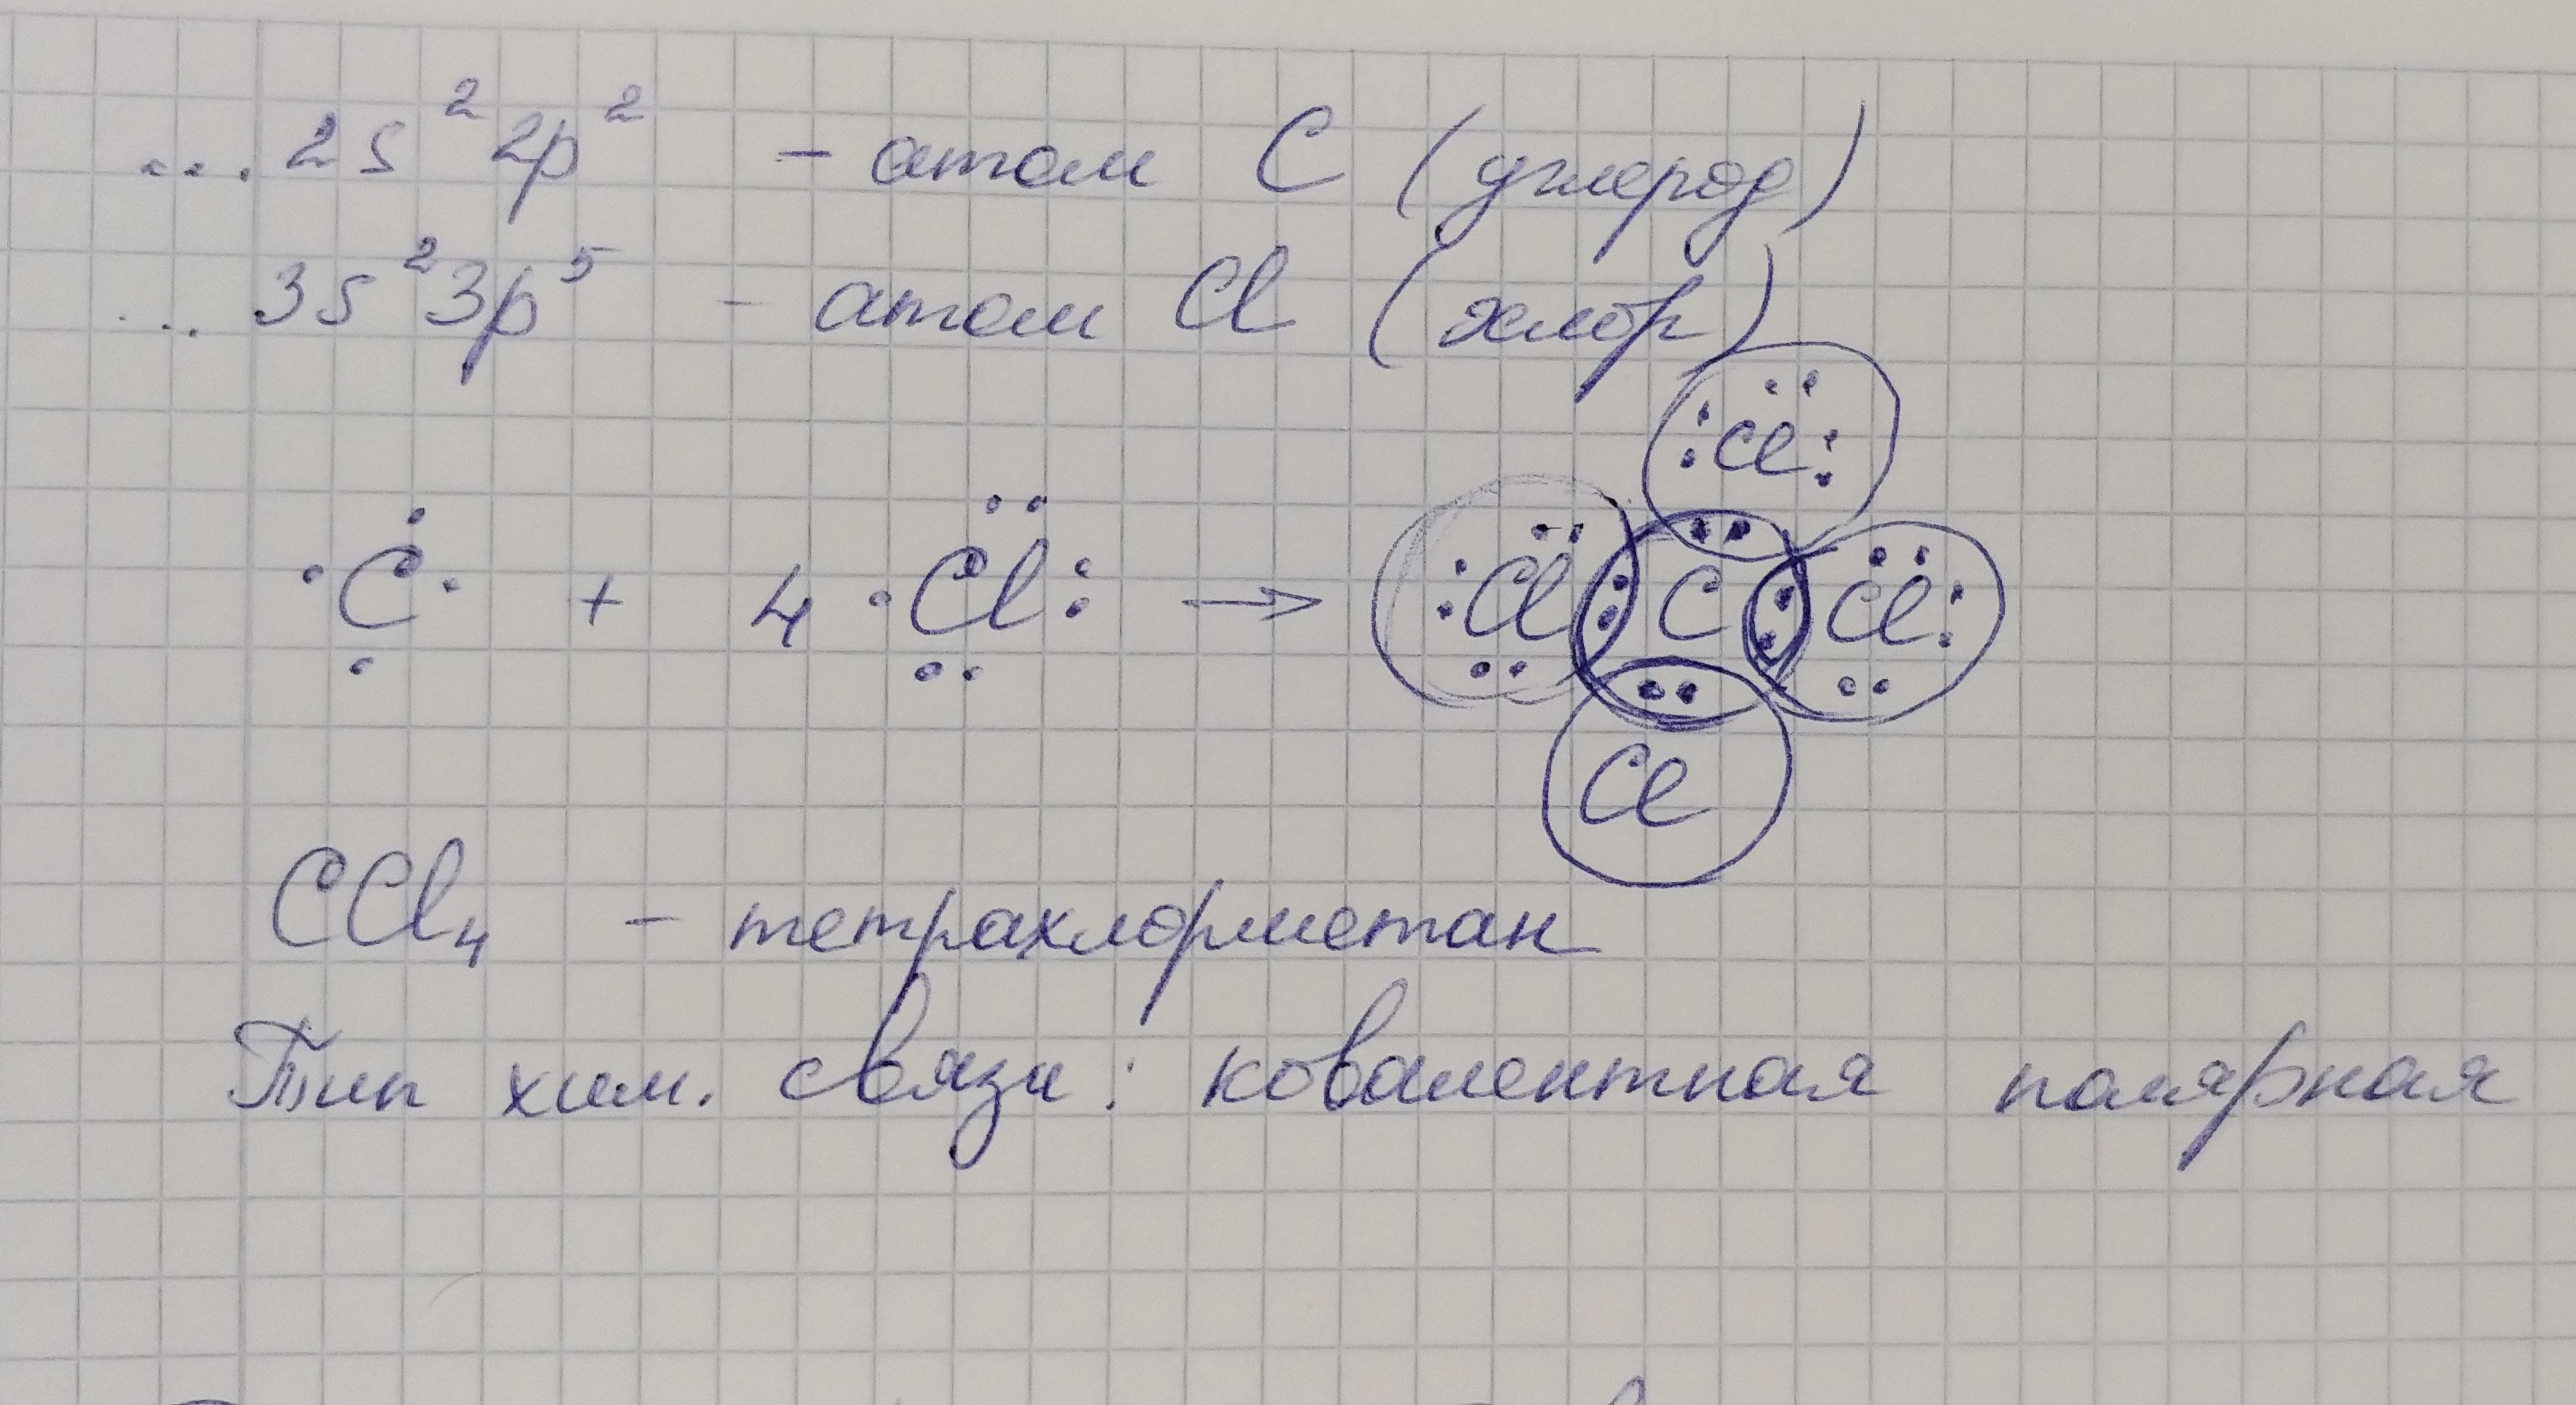 ... 2s² 2p² - атом C (углерод)
... 3s² 3p⁵ - атом Cl (хлор)
Cl
C + 4 Cl → Cl C Cl
Cl
CCl₄ - тетрахлорметан
Тип хим. связи: ковалентная полярная